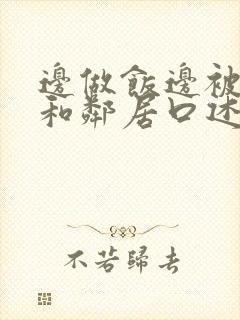 邊做飯邊被
和鄰居口述
不若歸去